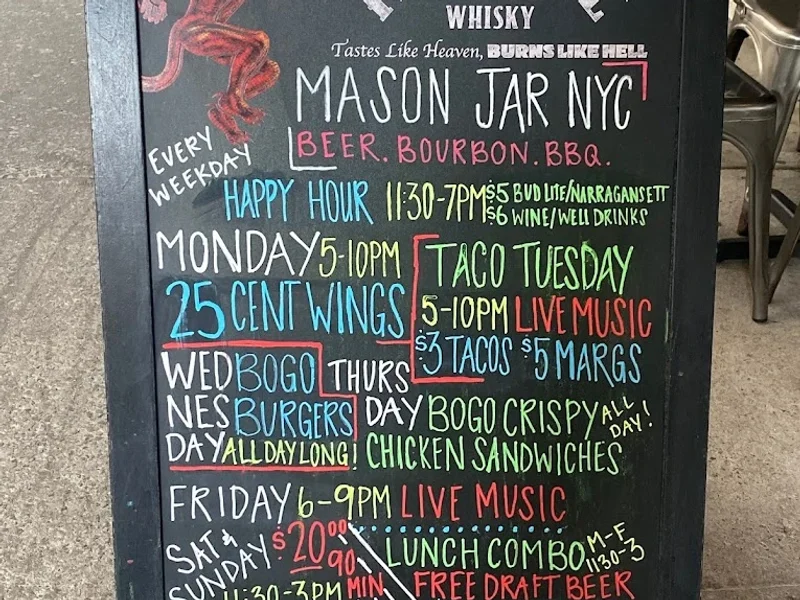 WHISKY
Tastes Like Heaven, BURNS LIKE HELL
MASON JAR NYC
BEER. BOURBON. BBQ.
EVERY
WEEKDAY
HAPPY HOUR 11:30-7PM $5 BUD LITE/NARRAGANSETT
$6 WINE/WELL DRINKS
MONDAY 5-10PM
25 CENT WINGS
TACO TUESDAY
5-10PM LIVE MUSIC
$3 TACOS $5 MARGS
WED BOGO
NES BURGERS
DAY ALL DAY LONG!
THURS
DAY BOGO CRISPY ALL
DAY!
CHICKEN SANDWICHES
FRIDAY 6-9PM LIVE MUSIC
SAT &
SUNDAY $20.00
90
11:30-3PM MIN
LUNCH COMBO M-F
11:30-3
FREE DRAFT BEER